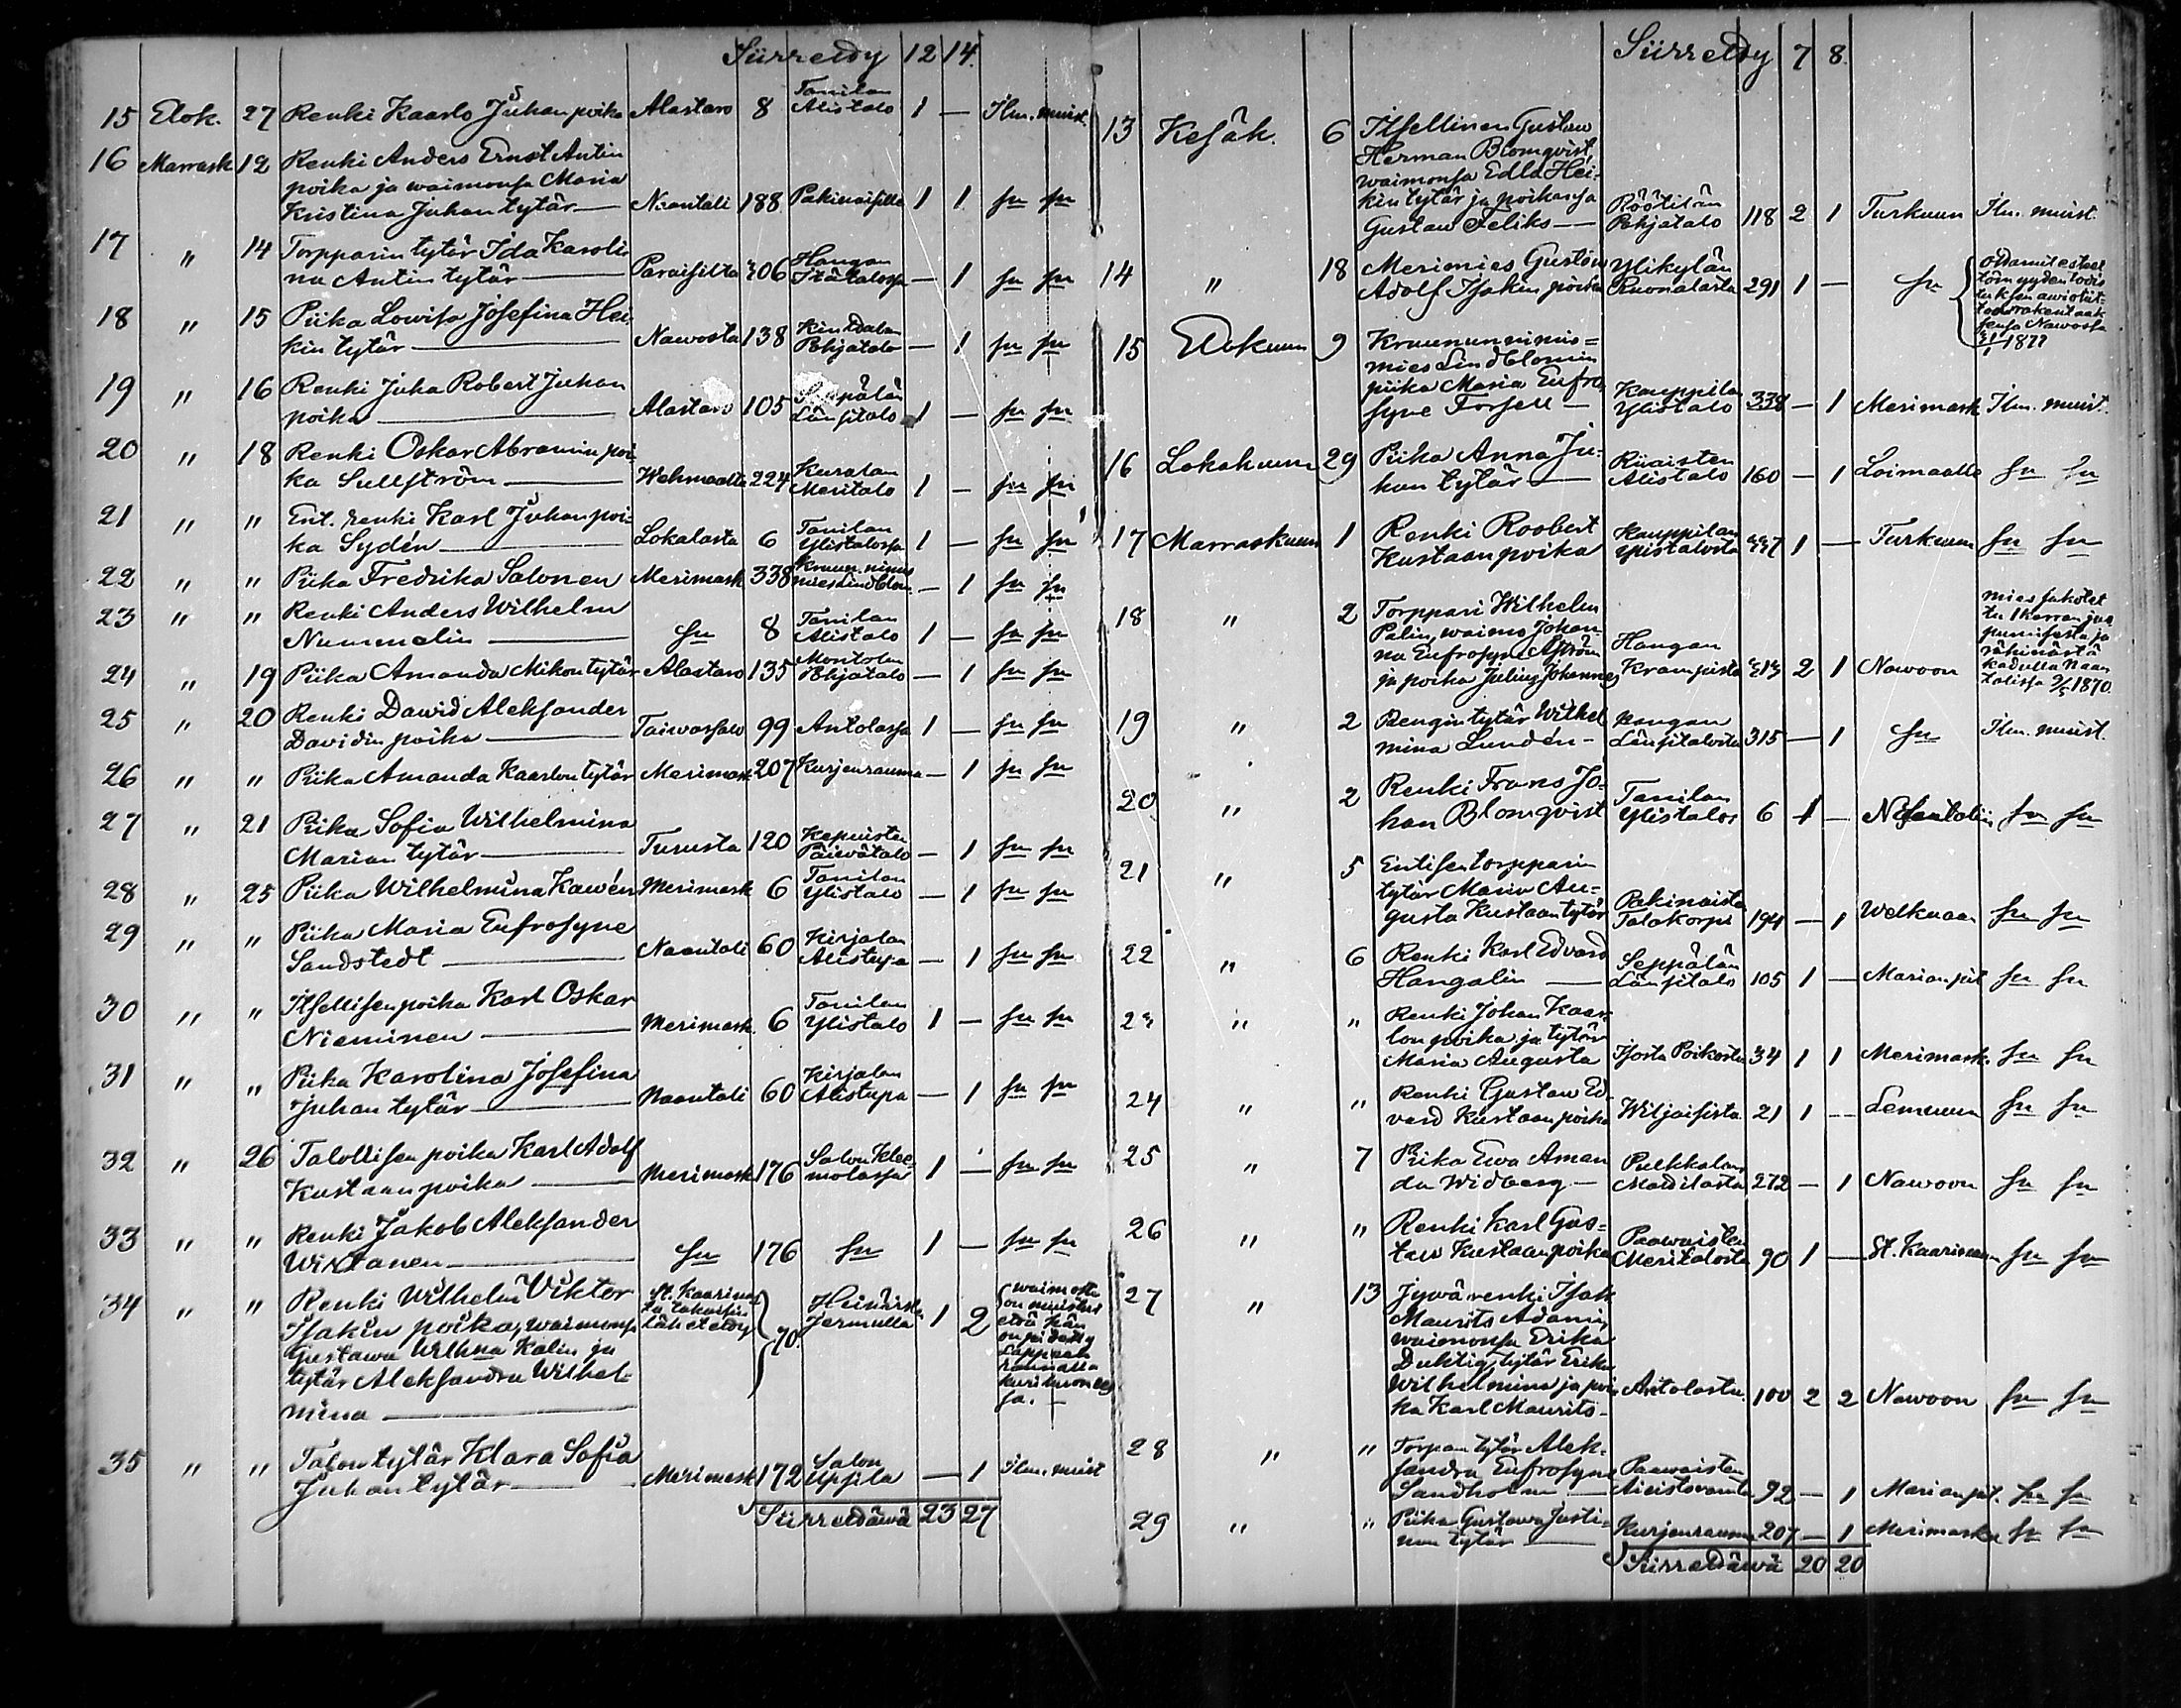 Siirretty 12 14.
15 Elok. 27 Renki Kaarlo Juhan poika Alastaro 8 Tanilan Alistalo 1 — Ilm. muist.
16 Marrask 12 Renki Anders Ernst Antin
poika ja waimonsa Maria
Kristina Juhan tytär — Naantali 188 Pakinaisilla 1 1 sn sn
17 " 14 Torpparin tytär Ida Karoli-
na Antin tytär — Paraisilta 306 Hangan Itätalossa — 1 sn sn
18 " 15 Piika Lowisa Josefina Hei-
kin tytär — Nawosta 138 Pohjatalo — 1 sn sn
19 " 16 Renki Juha Robert Juhan
poika — Alastaro 105 Seppälän Länsitalo 1 — sn sn
20 " 18 Renki Oskar Abramin poi-
ka Sellström — Wehmaalta 224 Kuralan Meritalo 1 — sn sn
21 " " Ent. renki Karl Juhan poi-
ka Sydén — Lokalasta 6 Tanilan Ylistalossa 1 — sn sn
22 " " Piika Fredrika Salonen Merimask 338 Kruun. nimis mies Lindblom — 1 sn sn
23 " " Renki Anders Wilhelm
Nummelin — sn 8 Tanilan Alistalo 1 — sn sn
24 " 19 Piika Amanda Mikon tytär Alastaro 135 Pohjatalo — 1 sn sn
25 " 20 Renki Dawid Aleksander
Davidin poika — Taiwassalo 99 Antolassa 1 — sn sn
26 " " Piika Amanda Kaarlon tytär Merimask 207 Kurjenrauma — 1 sn sn
27 " 21 Piika Sofia Wilhelmina
Marian tytär — Turusta 120 Päivätalo — 1 sn sn
28 " 25 Piika Wilhelmina Kawén Merimask 6 Tanilan Ylistalo — 1 sn sn
29 " " Piika Maria Eufrosyne
Sandstedt — Naantali 60 Kirjalan Alistupa — 1 sn sn
30 " " Itsellisen poika Karl Oskar
Nieminen — Merimask. 6 Tanilan Ylistalo 1 — sn sn
31 " " Piika Karolina Josefina
Juhan tytär — Naantali 60 Kirjalan Alistupa — 1 sn sn
32 " 26 Talollisen poika Karl Adolf
Kustaan poika — Merimask 176 Salon Klee-molassa 1 — sn sn
33 " " Renki Jakob Aleksander
Wirtanen — sn 176 sn 1 — sn sn
34 " " Renki Wilhelm Viktor
Isakin poika, waimonsa
Gustawa Wilhna Kalin ja
tytär Aleksandra Wilhel-
mina — St. Kaarinasta takaisin lähetetty 70. Heinäisten Jermulla 1 2 waimosta on muistut että hän on pidetty Lappeen rannalla kurihuonees sa. —
35 " " Talon tytär Klara Sofia
Juhan tytär — Merimask 172 Salon Uppila — 1 Ilm. muist
Siirrettäwä 23 27
Siirretty 7 8.
13 Kesäk. 6 Itsellinen Gustaw
Herman Blomqvist,
waimonsa Edla Hei-
kin tytär ja poikansa
Gustaw Feliks — Röötilän Pohjatalo 118 2 1 Turkuun Ilm. muist.
14 " 18 Merimies Gustaw
Adolf Isakin poika Ylikylän Ruonalasta 291 1 — sn
1877
15 Elokuun 9 Kruununnimis=
mies Lindblomin
piika Maria Eufro-
syne Forsell — Kauppilan Ylistalo 338 — 1 Merimask Ilm. muist.
16 Lokakuun 29 Piika Anna Ju-
han tytär — Riiaisten Alistalo 160 — 1 Loimaalle sn sn
17 Marraskuun 1 Renki Roobert
Kustaan poika Kauppilan Ylistalosta 337 1 — Turkuun sn sn
18 " 2 Torppari Wilhelm
Palin, waimo Johan-
na Eufrosyne Aström
ja poika Julius Johannes Hangan Krampista 313 2 1 Nawoon mies sakotet tu 1 kerran juo pumisesta ja
kadulla Naan talissa 9/5 1870.
19 " 2 Rengin tytär Wilhel
mina Lundén — Hangan Länsitalosta 315 — 1 sn Ilm. muist.
20 " 2 Renki Frans Jo-
han Blomqvist Tanilan Ylistalos 6 1 — Naantaliin sn sn
21 " 5 Entisen torpparin
tytär Maria Au-
gusta Kustaan tytär Pakinaista Talakorpi 194 — 1 Welkuaan sn sn
22 " 6 Renki Karl Edvard
Hangalin — Seppälän Länsitalo 105 1 — Marian pit sn sn
23 " " Renki Johan Kaar-
lon poika ja tytär
Maria Augusta Isosta Poikosta 34 1 1 Merimask. sn sn
24 " " Renki Gustaw Ed-
vard Kustaan poika Wiljaisista 21 1 — Lemuun sn sn
25 " 7 Piika Ewa Aman
da Widberg — Pulkkalan Mattilasta 272 — 1 Nawoon sn sn
26 " " Renki Karl Gus-
taw Kustaan poika Paawaisten Meritalosta 90 1 — St. Kaarinaan sn sn
27 " 13 Jywärenki Isak
Maurits Adamin,
waimonsa Erika
Duktig, tytär Erika
Wilhelmina ja poi-
ka Karl Maurits — Antolasta 100 2 2 Nawoon sn sn
28 " " Torpan tytär Alek-
sandra Eufrosyne
Sandholm — Paawaisten 92 — 1 Marian pit. sn sn
29 " " Piika Gustawa Justi-
nan tytär — Kurjenrauma 207 — 1 Merimasku sn sn
Siirrettäwä 20 20